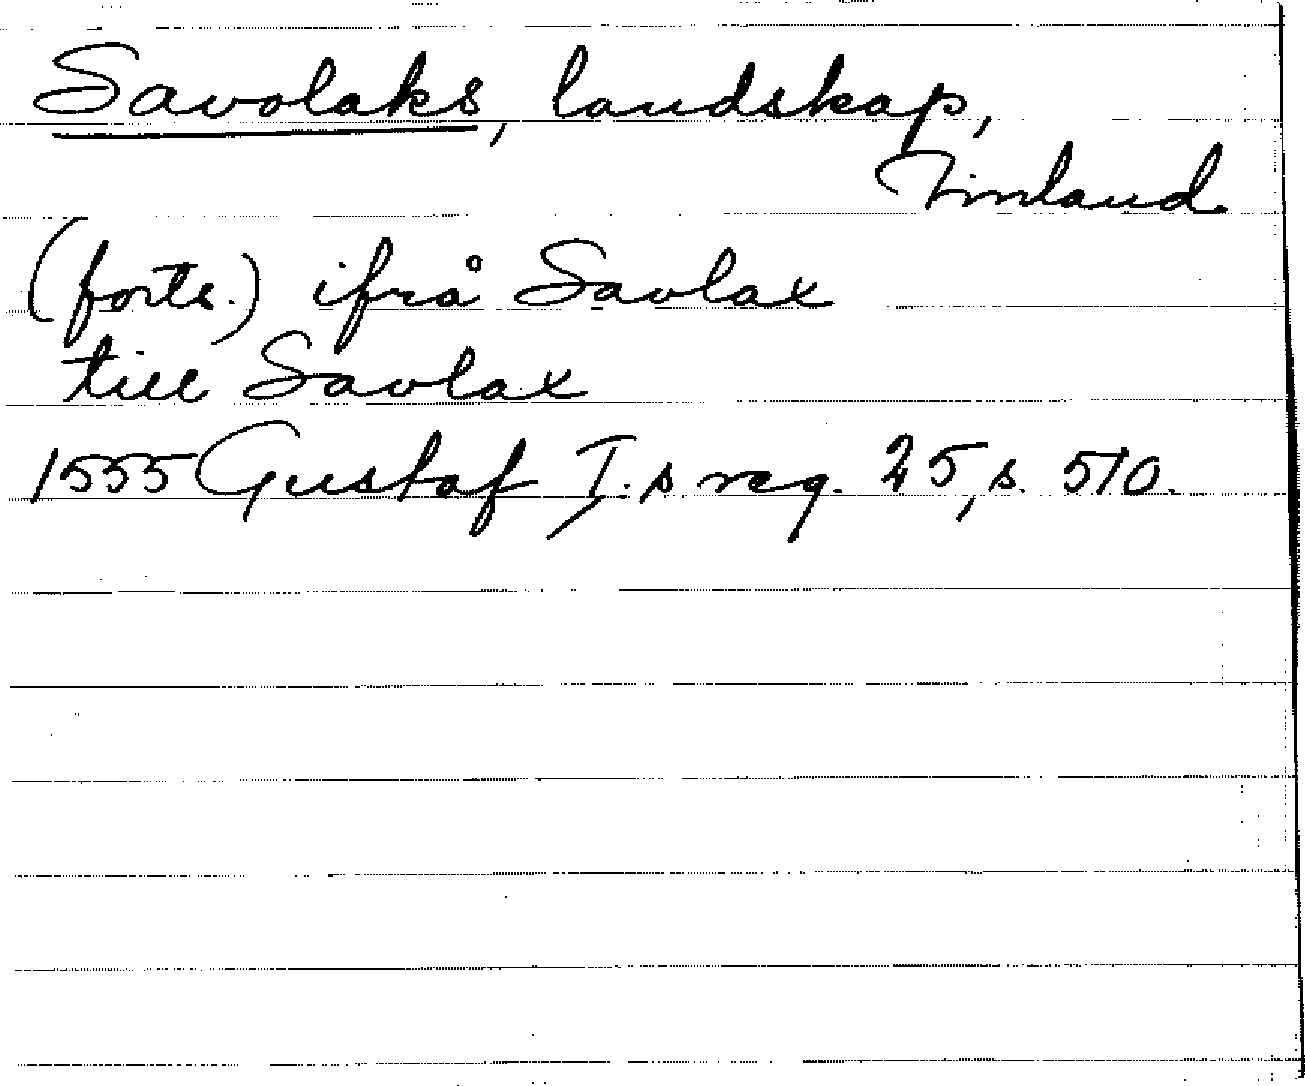 Savolaks, landskap,
Finland
(forts.) ifrå Savlax
till Savlax
1555 Gustaf I:s reg. 25, s. 510.